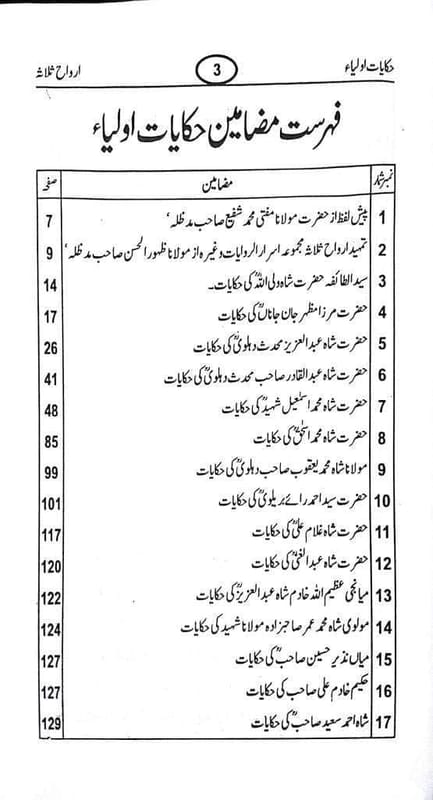 حکایات اولیاء 3 ارواح ثلاثہ
فہرست مضامین حکایات اولیاء
نمبر شمار مضامین صفحہ
1 پیش لفظ از حضرت مولانا مفتی محمد شفیع صاحب مدظلہ، 7
2 تمہید ارواح ثلاثہ مجموعہ اسرار الروایات وغیرہ از مولانا ظہور الحسن صاحب مدظلہ، 9
3 سید الطائفہ حضرت شاہ ولی اللہؒ کی حکایات۔ 14
4 حضرت مرزا مظہر جان جاناںؒ کی حکایات 17
5 حضرت شاہ عبدالعزیز محدث دہلویؒ کی حکایات 26
6 حضرت شاہ عبدالقادر صاحب محدث دہلویؒ کی حکایات 41
7 حضرت شاہ محمد اسمٰعیل شہیدؒ کی حکایات 48
8 حضرت شاہ محمد اسحٰقؒ کی حکایات 85
9 مولانا شاہ محمد یعقوب صاحب دہلویؒ کی حکایات 99
10 حضرت سید احمد رائے بریلویؒ کی حکایات 101
11 حضرت شاہ غلام علیؒ کی حکایات 117
12 حضرت شاہ عبدالغنیؒ کی حکایات 120
13 میانجی عظیم اللہ خادم شاہ عبدالعزیزؒ کی حکایات 122
14 مولوی شاہ محمد عمر صاحبزادہ مولانا شہید کی حکایات 124
15 میاں نذیر حسین صاحبؒ کی حکایات 127
16 حکیم خادم علی صاحب کی حکایات 127
17 شاہ احمد سعید صاحبؒ کی حکایات 129